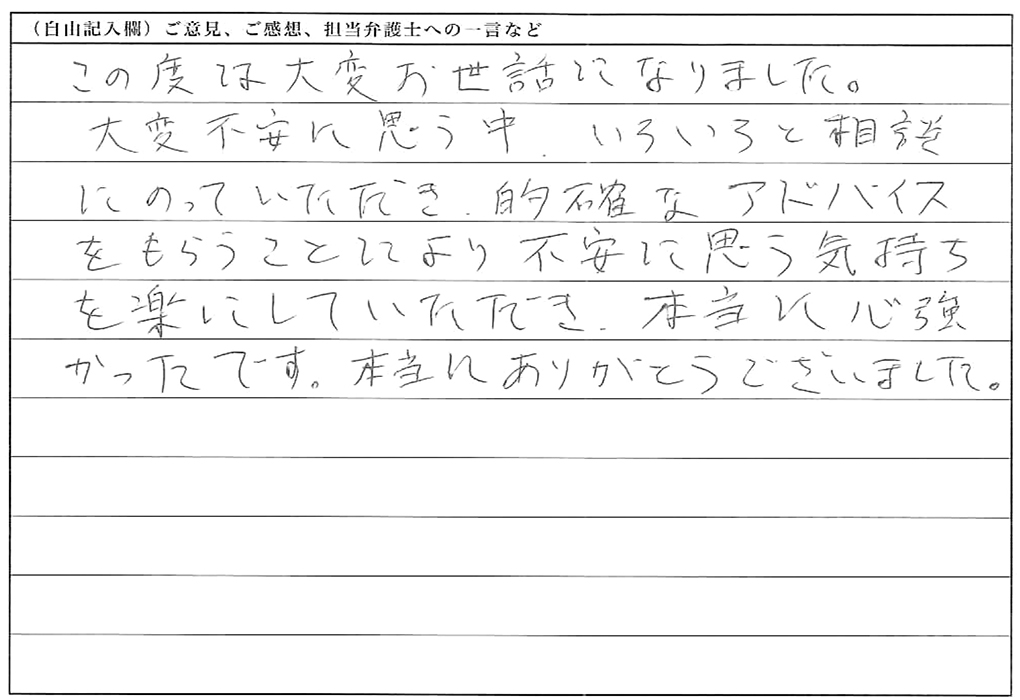 （自由記入欄）ご意見、ご感想、担当弁護士への一言など
この度は大変お世話になりました。
大変不安に思う中、いろいろと相談
にのっていただき、的確なアドバイス
をもらうことにより不安に思う気持ち
を楽にしていただき、本当に心強
かったです。本当にありがとうございました。